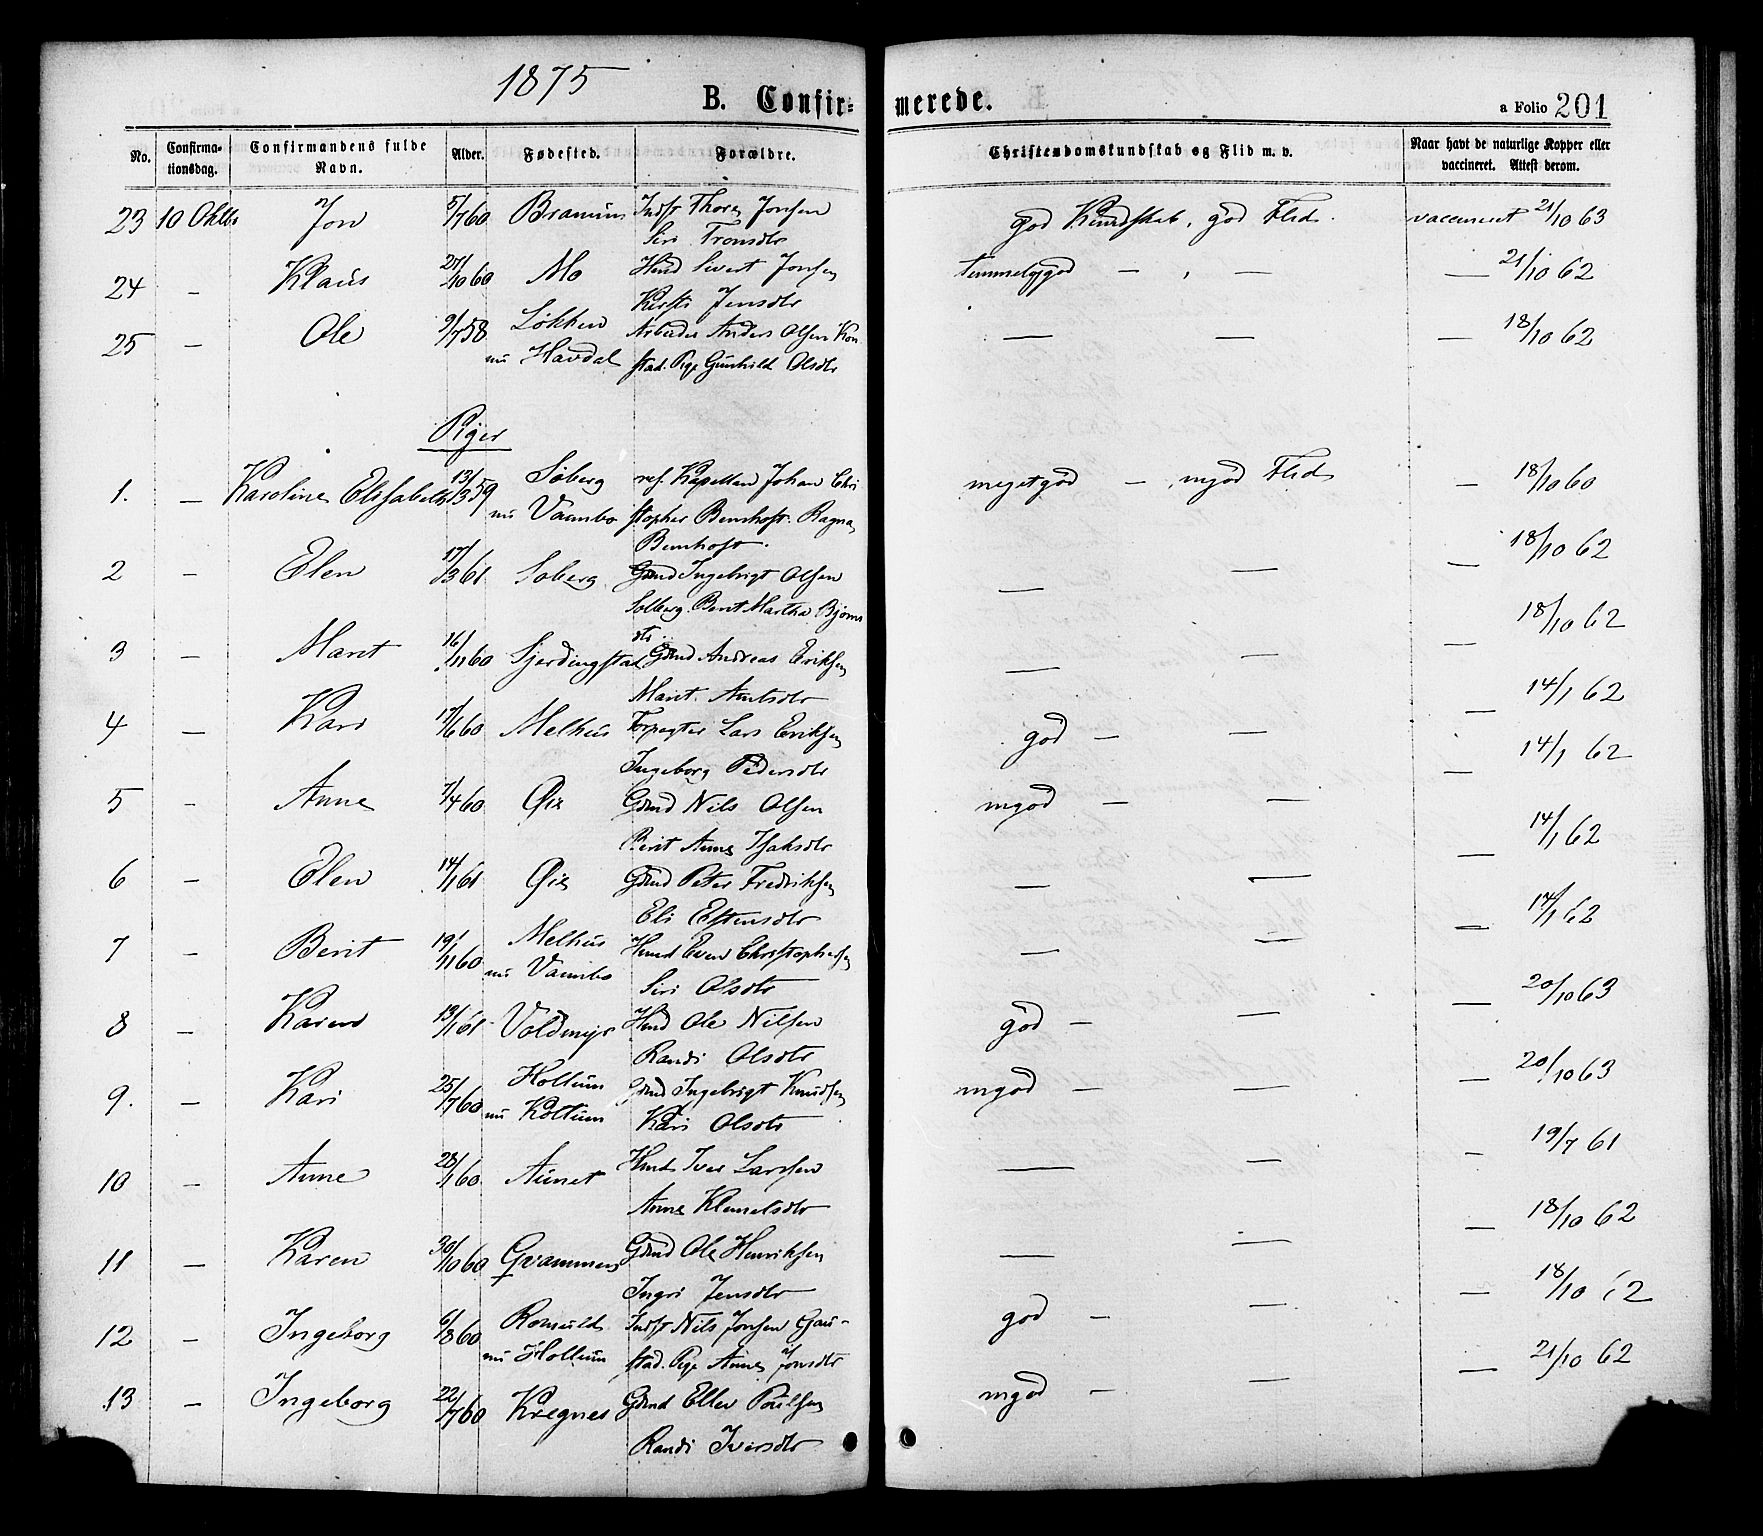 1875
B. Confir= merede.
a Folio 201
No. Confirma-tionsdag. Confirmandens fulde Navn. Alder. Fødested. Forældre. Christendomskundskab og Flid m. v. Naar havt de naturlige Kopper eller vaccineret. Attest derom.
23 10 Oktbr Jon 5/7 60 Indst Thore Jonsen god Kundskab, god Flid. vaccineret 21/10 63
Siri Tronsdtr
24 — Klaus 27/10 60 Mo Sivert Jonsen temmeligod — , — — 21/10 62
Kirsti Jensdtr
25 — Ole 9/7 58 Løkken Arbeider Anders Olsen Kon — — — 18/10 62
nu Havdal stad. Pige Gunhild Olsdtr
Piger
1. — Karoline Elisabeth 13/3 59 Søberg Kapellan Johan Chri megetgod — , mgod Flid — 18/10 60
nu Vambo stopher Ragna
2 — Elen 17/3 61 Søberg Gmd Ingebrigt Olsen — — — 18/10 62
Solberg. Berit Martha Bjørns
dtr.
3 — Marit 16/11 60 Gjerdingstad Gmd Andreas Eriksen — — — 18/10 62
Marit Arntsdtr
4 — Kari 17/6 60 Melhus Forpagter Lars Eriksen god — — — 14/1 62
Ingeborg Pedersdtr
5 - Anne 7/4 60 Øie Gmd Nils Olsen mgod — — — 14/1 62
Berit Anne Isaksdtr
6 — Elen 14/1 61 Øie Gmd Peter Fredriksen — — — 14/1 62
Eli Estensdtr
7 - Berit 19/11 60 Melhus Hmd Even Christophersen — — — 14/1 62
nu Vambo Siri Olsdtr
8 — Karen 13/1 61 Voldmyr Hmd Ole Nilsen god — — — 20/10 63
Randi Olsdtr
9. — Kari 25/7 60 Hollum Gmd Ingebrigt Knudsen mgod — — — 20/10 63
nu Kollum Kari Olsdtr
10 — Anne 28/1 60 Aunet Hmd Iver Larsen — — — 19/7 61
Anne Klemetsdtr
11 — Karen 30/10 60 Gravmmens Gmd Ole Henriksen — — — 18/10 62
Ingri Jensdtr
12 — Ingeborg 6/8 60 Romuld Indst Nils Jonsen Gau- god — — — 18/10 62
nu Hollum stad. Pige Anne Jonsdtr
13 — Ingeborg 22/7 60 Kregnes Gmd Ellev Poulsen mgod — — — 21/10 62
Randi Iversdtr